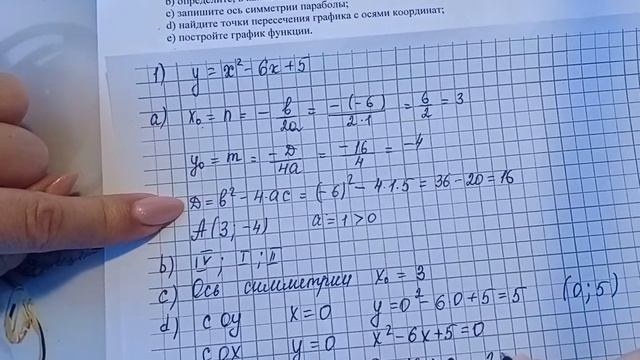 c) запишите ось симметрии параболы;
d) найдите точки пересечения графика с осями координат;
e) постройте график функции.
1) y = x² - 6x + 5
a) x₀ = n = - b/2a = -(-6)/2·1 = 6/2 = 3
y₀ = m = -D/4a = -16/4 = -4
D = b² - 4·ac = (-6)² - 4·1·5 = 36 - 20 = 16
A(3; -4) a = 1 > 0
b) IV ; I ; II
c) Ось симметрии x₀ = 3
d) с оy x = 0 y = 0² - 6·0 + 5 = 5 (0; 5)
с ох y = 0 x² - 6x + 5 = 0